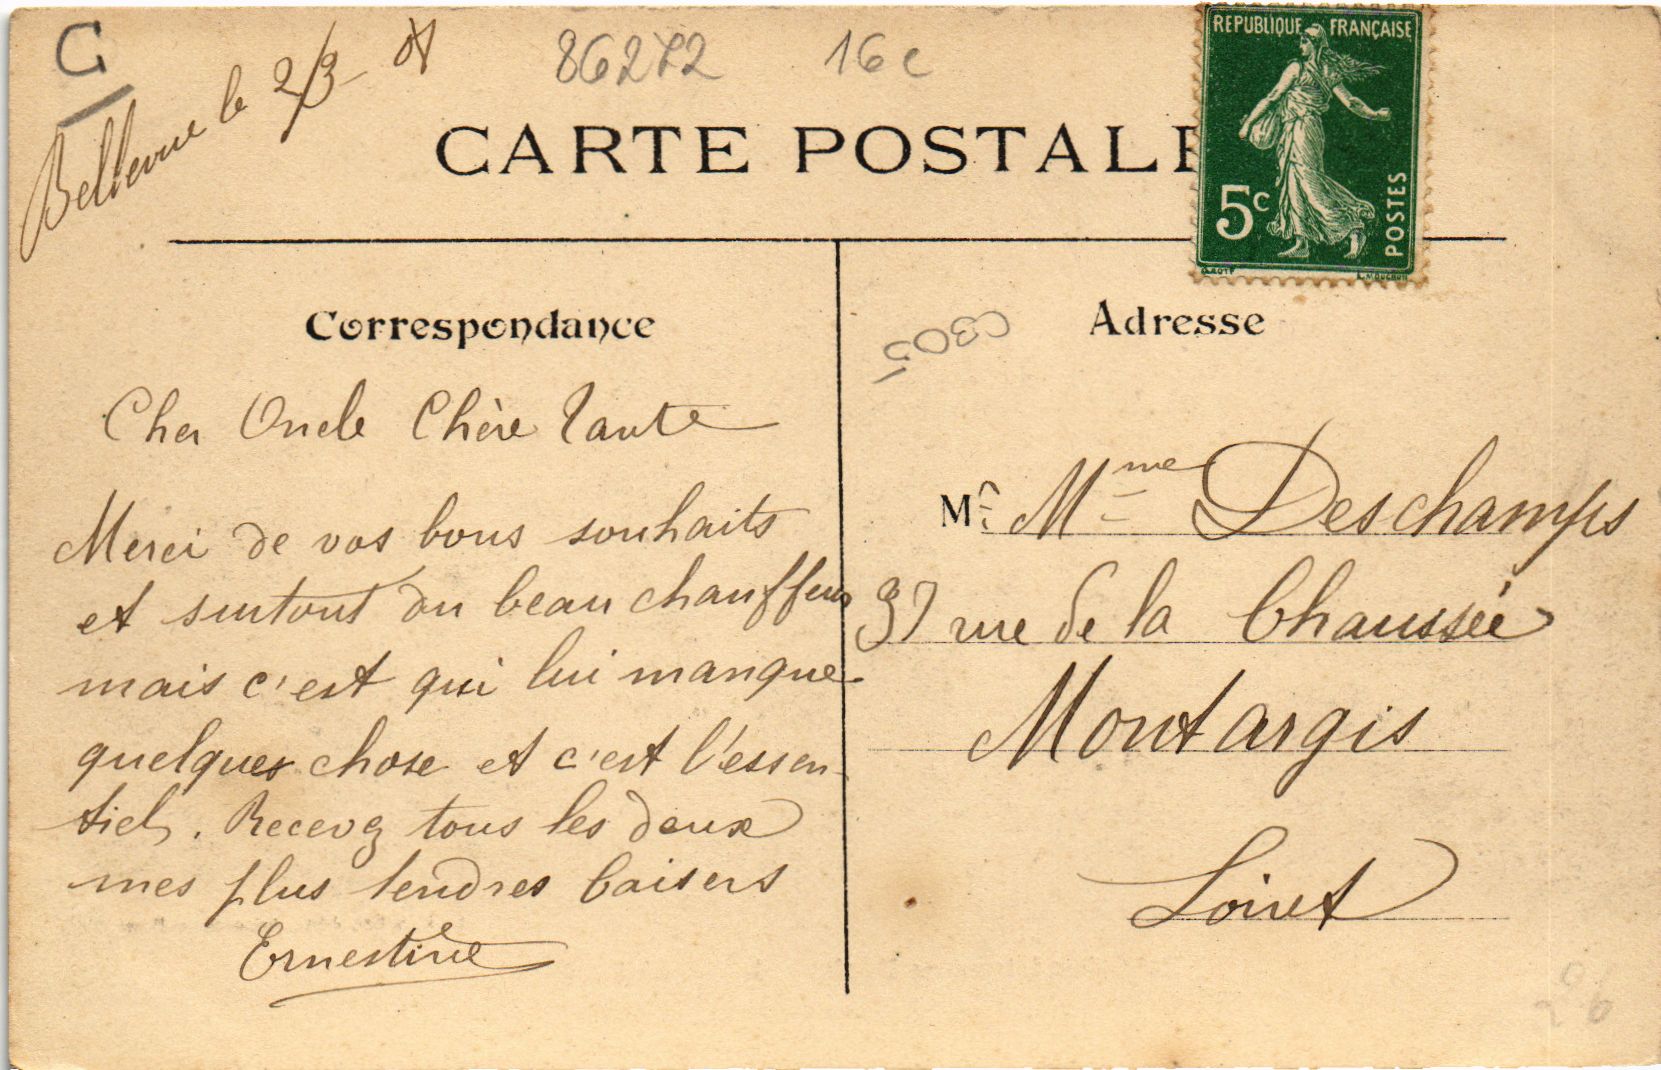 G
Bellevue le 2/3 08
86272 16c
CARTE POSTALE
REPUBLIQUE FRANÇAISE
5c
POSTES
Correspondance
Cher Oncle Chère Tante
Merci de vos bons souhaits
et surtout du beau chauffeur
mais c'est qui lui manque
quelques chose et c'est l'essen-
tiel. Recevez tous les deux
mes plus tendres baisers
Ernestine
C305
Adresse
M r. Mme Deschamps
37 rue de la Chaussée
Montargis
Loiret